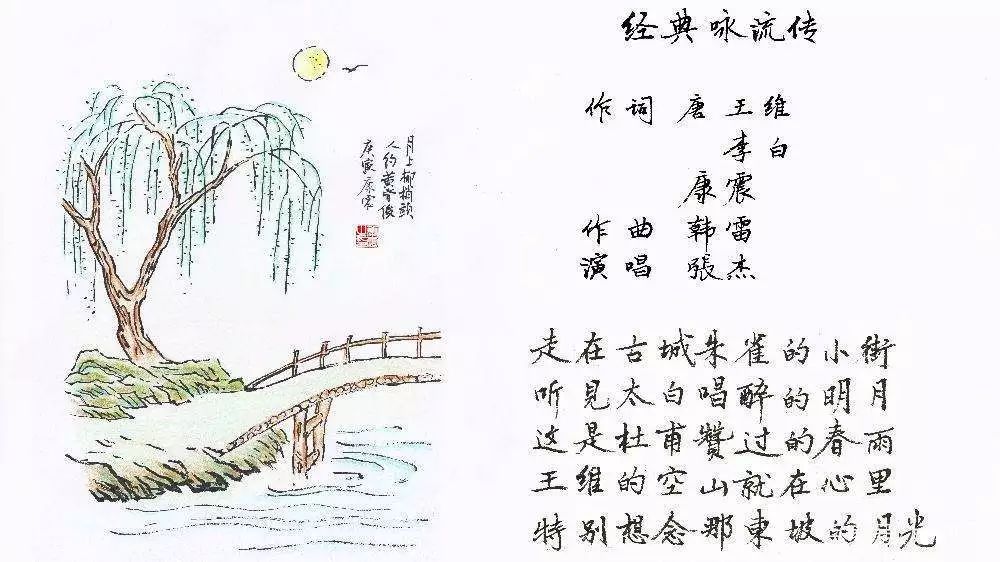 经典咏流传
作词 唐 王维
李白
康震
作曲 韩雷
演唱 張杰
月上柳梢頭
人约黄昏後
庚寅康震
走在古城朱雀的小街
听見太白唱醉的明月
这是杜甫贊过的春雨
王维的空山就在心里
特别想念那東坡的月光